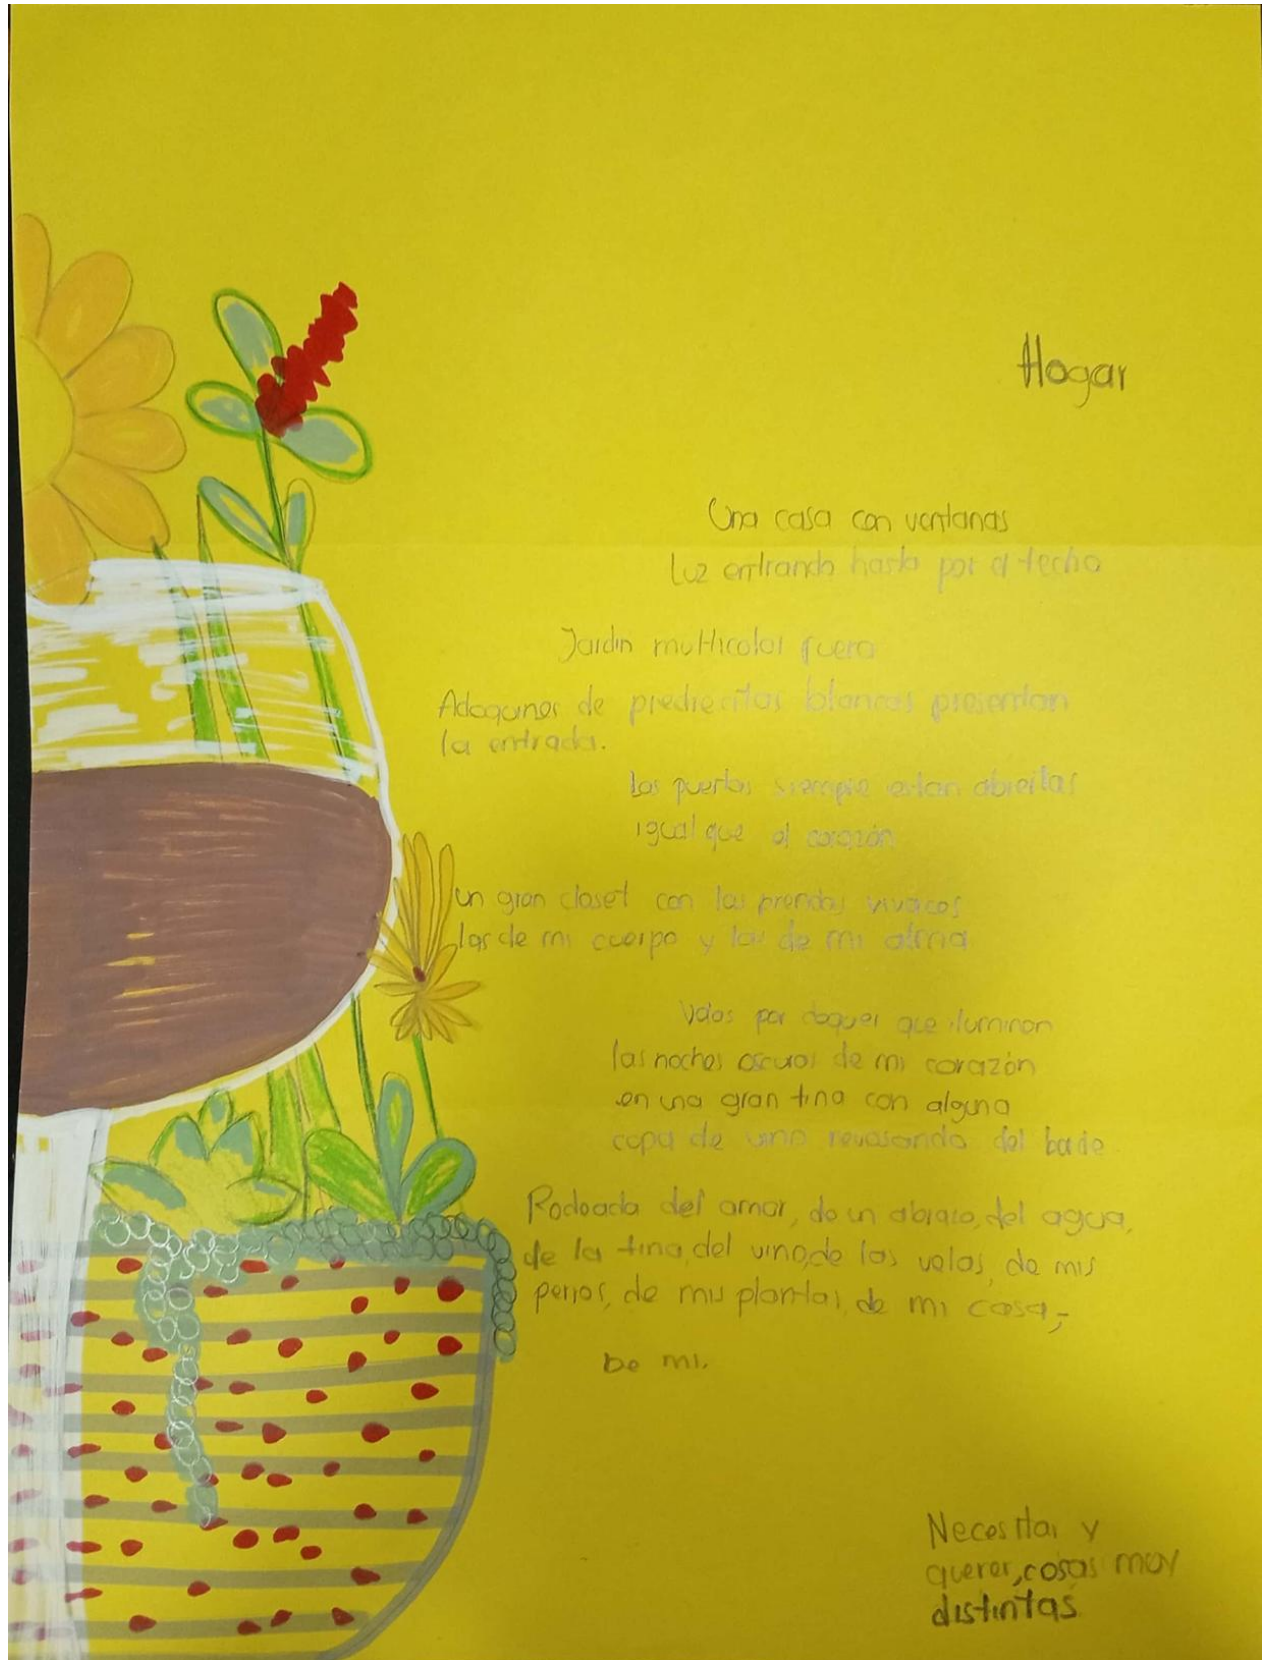 Hogar
Una casa con ventanas
Luz entrando hasta por el techo
Jardin multicolor fuera
Adoquines de predrecitas blancas presentan
la entrada.
Las puertas siempre estan abiertas
igual que el corazón
un gran closet con las prendas vivaces
las de mi cuerpo y las de mi alma
Velas por doquier que iluminan
las noches oscuras de mi corazón
en una gran tina con alguna
copa de vino revosando del borde
Rodeada del amor, de un abrazo, del agua,
de la tina, del vino, de las velas, de mis
perros, de mis plantas, de mi casa,
De mi.
Necesitar y
querer, cosas muy
distintas